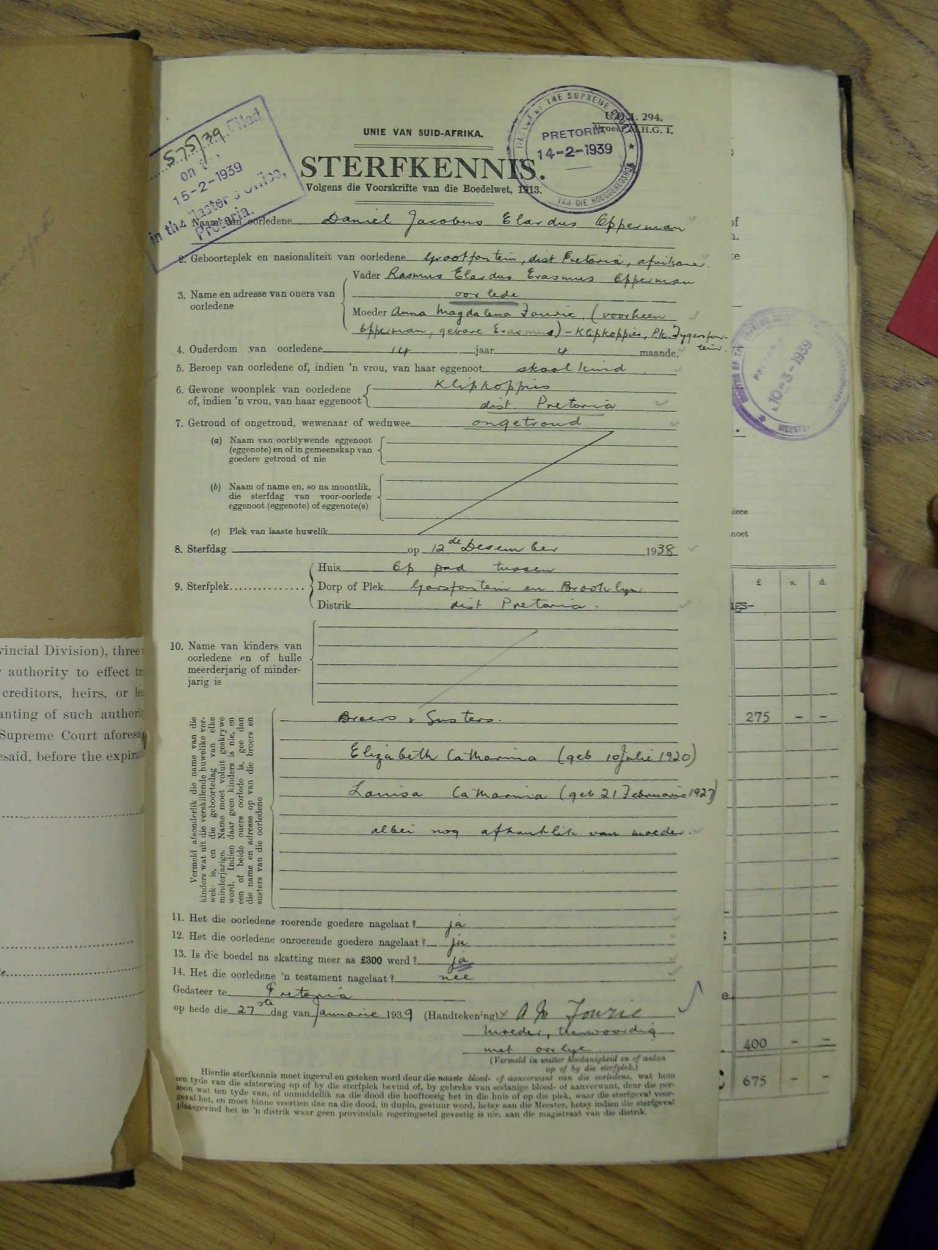 575/39 Filed
on the
15-2-1939
in the Master's Office,
Pretoria.
MASTER OF THE SUPREME COURT
PRETORIA
14-2-1939
VAN DIE HOOGGEREGSHOF
294.
M.H.G. 1.
UNIE VAN SUID-AFRIKA.
STERFKENNIS.
Volgens die Voorskrifte van die Boedelwet, 1913.
1. Naam van oorledene Daniel Jacobus Elardus Opperman
2. Geboorteplek en nasionaliteit van oorledene Grootfontein, dist Pretoria, afrikaner.
3. Name en adresse van ouers van oorledene
Vader Rasmus Elardus Erasmus Opperman
oorlede
Moeder Anna Magdalena Fourie, (voorheen
Opperman, gebore Erasmus) - Klipkoppies, Pk. Tygerfontein.
4. Ouderdom van oorledene 14 jaar 4 maande.
5. Beroep van oorledene of, indien 'n vrou, van haar eggenoot skool kind
6. Gewone woonplek van oorledene of, indien 'n vrou, van haar eggenoot
Klipkoppies
dist. Pretoria
7. Getroud of ongetroud, wewenaar of weduwee ongetroud
(a) Naam van oorblywende eggenoot
(eggenote) en of in gemeenskap van
goedere getroud of nie
(b) Naam of name en, so na moontlik,
die sterfdag van voor-oorlede
eggenoot (eggenote) of eggenote(s)
(c) Plek van laaste huwelik
8. Sterfdag op 12de Desember 1938
9. Sterfplek
Huis Op pad tussen
Dorp of Plek Garsfontein en Brooklyn
Distrik dist Pretoria.
10. Name van kinders van
oorledene en of hulle
meerderjarig of minder-
jarig is
Vermeld afsonderlik die name van die
kinders wat uit die verskillende huwelike ver-
wek is, en die geboortedag van elke
minderjarige. Name moet voluit geskrywe
word. Indien daar geen kinders is nie, en
een of beide ouers oorlede is, gee dan
die name en adresse op van die broers en
susters van die oorledene
Broers & Susters.
Elizabeth Catharina (geb 10 Julie 1920)
Louisa Catharina (geb 21 Februarie 1927)
albei nog afhanklik van moeder.
11. Het die oorledene roerende goedere nagelaat? ja
12. Het die oorledene onroerende goedere nagelaat? ja
13. Is die boedel na skatting meer as £300 werd? ja
14. Het die oorledene 'n testament nagelaat? nee
Gedateer te Pretoria
op hede die 27ste dag van Januarie 1939 (Handtekening) A M Fourie
Moeder, teenwoordig
met oorlye.
(Vermeld in watter hoedanigheid en of anders
op of by die sterfplek.)
Hierdie sterfkennis moet ingevul en geteken word deur die naaste bloed- of aanverwant van die oorledene, wat
ten tyde van die afsterwing op of by die sterfplek bevind of, by gebreke van sodanige bloed- of aanverwant, deur die per-
soon wat ten tyde van, of onmiddellik na die dood die hooftoesig het in die huis of op die plek, waar die sterfgeval voor-
geval het, en moet binne veertien dae na die dood, in duplo, gestuur word, hetsy aan die Meester, hetsy indien die sterfgeval
plaasgevind het in 'n distrik waar geen provinsiale regeringsetel gevestig is nie, aan die magistraat van die distrik.
vincial Division), three
authority to effect
creditors, heirs, or
anting of such
Supreme Court
esaid, before the
10-3-1939
£ s. d.
275 - -
400 - -
675 - -